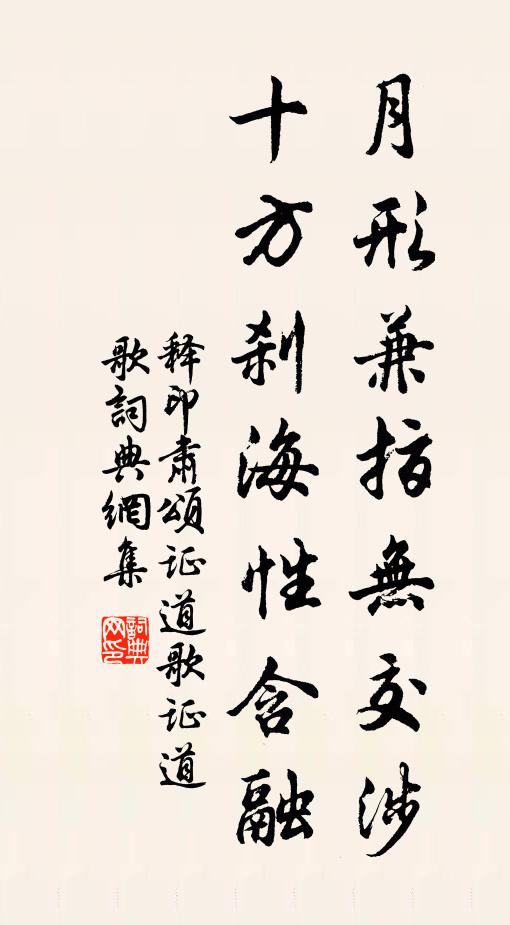 月形兼指無交涉
十方刹海性含融
釋印肅頌证道歌证道
歌詞典網集
詞典
网印